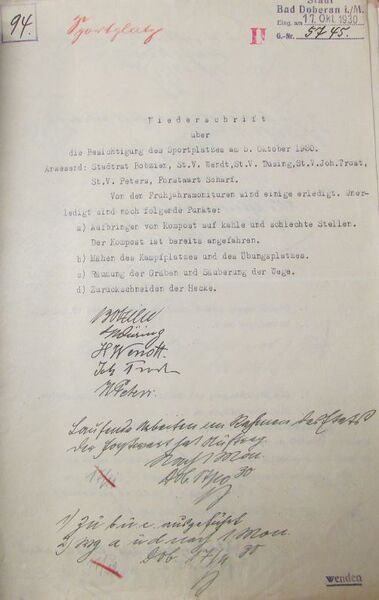 94.
Sportplatz
II
Stadt
Bad Doberan i./M.
Eing. am 17. Okt. 1930
G.-Nr. 5745.
Niederschrift
über
die Besichtigung des Sportplatzes am 8. Oktober 1930.
Anwesend: Stadtrat Bobzien, St.V. Wendt, St.V. Düsing, St.V. Joh. Trost,
St.V. Peters, Forstwart Scharf.
Von den Frühjahrsmonituren sind einige erledigt. Uner-
ledigt sind noch folgende Punkte:
a) Aufbringen von Kompost auf kahle und schlechte Stellen.
Der Kompost ist bereits angefahren.
b) Mähen des Kampfplatzes und des Übungsplatzes.
c) Räumung der Gräben und Säuberung der Wege.
d) Zurückschneiden der Hecke.
Bobzien
Düsing
H Wendt.
Joh Trost
Peters.
Laufende Arbeiten im Rahmen des Etats
der Forstwart hat Auftrag
Nach 1 Mon.
Dob. 30
1) Zu b u c ausgeführt
2) Wg a u d nach 1 Mon.
Dob. 17/11 30
wenden